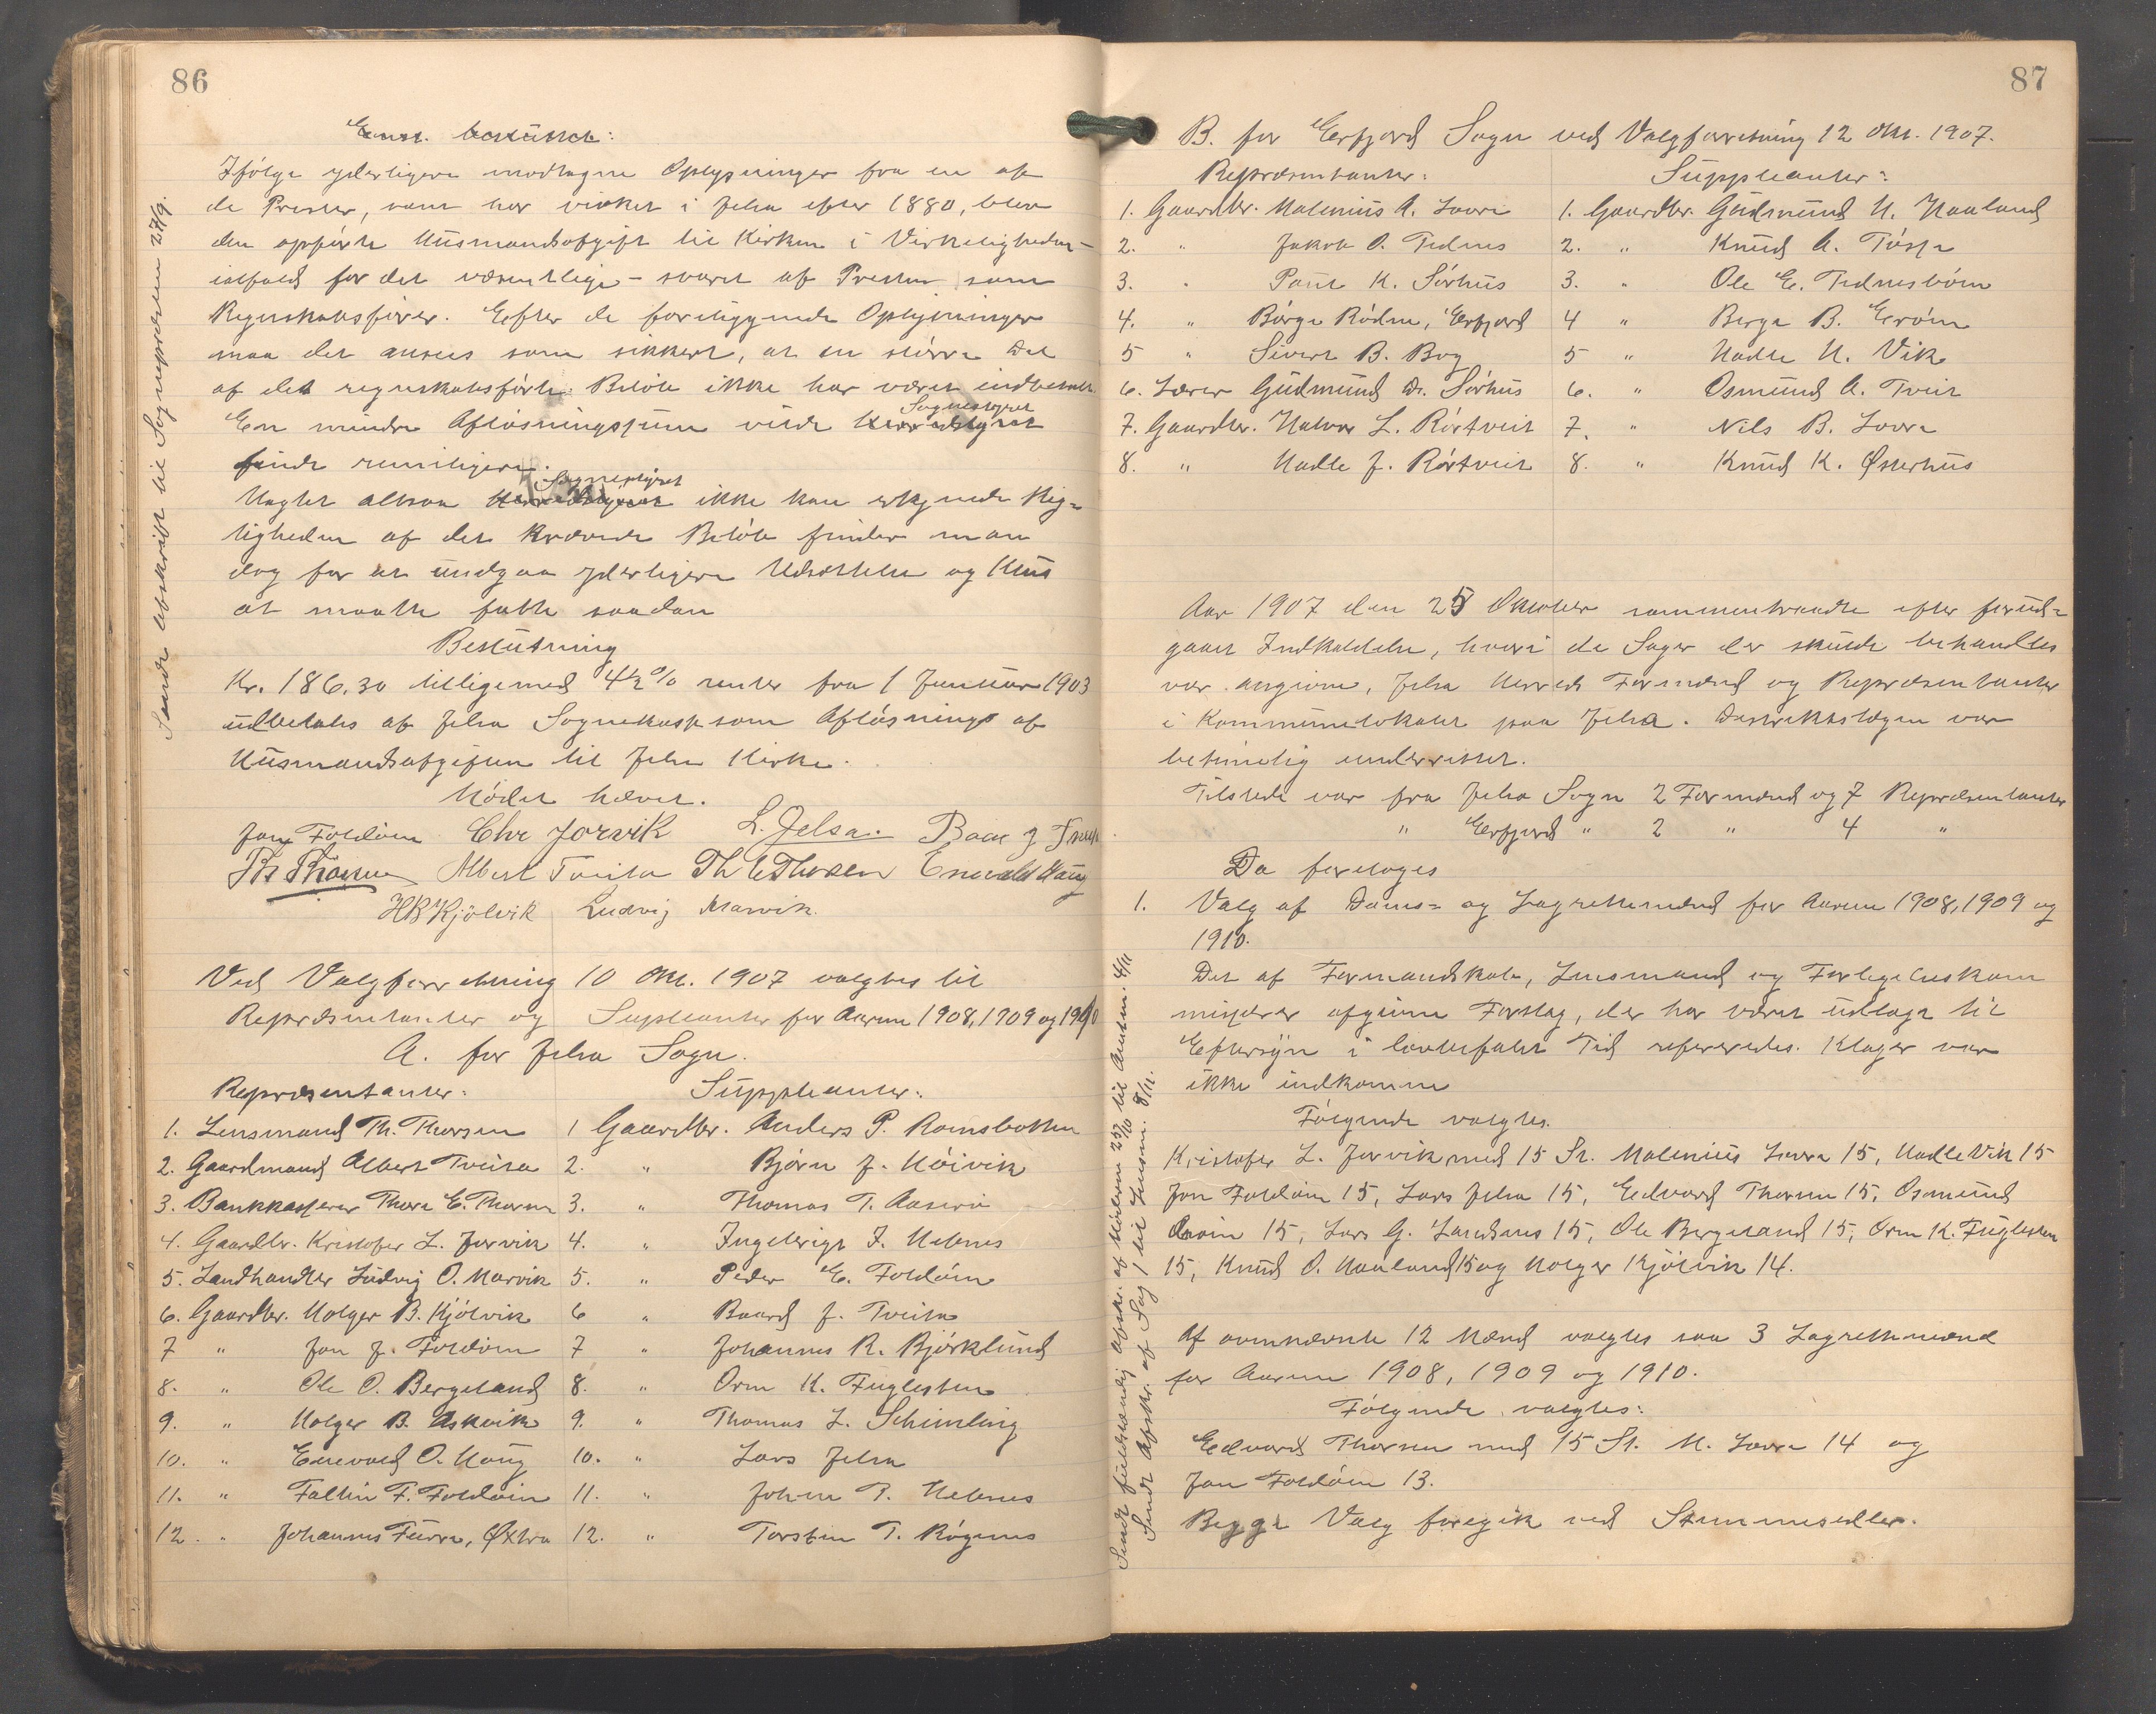 86
Sendt Afskrift til Sognepræsten 27/9.
Enst. besluttet:
Ifølge yderligere modtagne Oplysninger fra en af
de Prester, som har virket i Jelsa efter 1880, blev
den opførte Husmandsafgift til Kirken i Virkeligheden -
ialfald for det væsentlige - svaret af Presten som
Regnskabsfører. Efter de foreliggende Oplysninger
maa det ansees som sikkert, at en større Del
af det regnskabsførte Beløb ikke har været indbetalt.
En mindre Afløsningssum vilde Herredstyret Sognestyret
finde rimeligere.
Uagtet altsaa Herredstyret Sognestyret ikke kan erkjende Rig=
tigheden af det krævede Beløb finder man
dog for at undgaa yderligere Udsættelse og Klus
at maatte fatte saadan
Beslutning
Kr. 186,30 tilligemed 4½ % renter fra 1 Januar 1903
udbetales af Jelsa Sognekasse som Afløsning af
Husmandsafgiften til Jelsa Kirke.
Mødet hævet.
Jon Foldøin Chr Jorvik L. Jelsa. Baar J Tveita
Th Thorsen Albert Tveita Th E Thorsen Enevald Haug
HB Kjölvik Ludvig Marvik.
Ved Valgforretning 10 Okt. 1907 valgtes til
Repræsentanter og Supleanter for Aarene 1908, 1909 og 1910
A. for Jelsa Sogn.
Repræsentanter: Suppleanter:
1. Lensmand Th. Thorsen 1 Gaardbr. Anders P. Ramsbotten
2. Gaardmand Albert Tveita 2. " Bjørn J. Høivik
3. Bankkasserer Thore E. Thorsen 3. " Thomas T. Aaserø
4. Gaardbr. Kristofer L. Jorvik 4. " Ingebrigt J. Hebnes
5. Landhandler Ludvig O. Marvik 5. " Peder E. Foldøin
6. Gaardbr. Holger B. Kjölvik 6 " Baard J. Tveita
7 " Jon J. Foldøin 7 " Johannes R. Bjørklund
8. " Ole O. Bergeland 8. " Orm K. Fuglesten
9. " Holger B. Askvik 9. " Thomas L. Schimling
10. " Enevald O. Haug 10. " Lars Jelsa
11. " Faltin F. Foldøin 11. " Johan P. Hebnes
12. " Johannes Furre, Øxtra 12. " Torsten T. Røgenes
87
B. for Erfjord Sogn ved Valgforretning 12 Okt. 1907.
Repræsentanter: Suppleanter:
1. Gaardbr. Malenius A. Lovra 1. Gaardbr. Gudmund H. Haaland
2. " Jakob O. Tednes 2. " Knud A. Tøsse
3. " Paul K. Sørhus 3. " Ole E. Tednesbøen
4. " Børge Rødne, Erfjord 4 " Berge B. Erøen
5 " Sivert B. Bog 5 " Hadle H. Vik
6. Lærer Gudmund Dr. Sørhus 6. " Osmund A. Tveit
7. Gaardbr. Halvor L. Rørtveit 7. " Nils B. Lovra
8. " Hadle J. Rørtveit 8. " Knud K. Østerhus
Aar 1907 den 25 Oktober sammentraadte efter forud=
gaaet Indkaldelse, hvori de Sager der skulde behandles
var angivne, Jelsa Herreds Formænd og Repræsentanter
i Kommunelokalet paa Jelsa. Distriktslægen var
betimelig underrettet.
Tilstede var fra Jelsa Sogn 2 Formænd og 7 Repræsentanter
" Erfjord " 2 " 4 "
Da foretoges
1. Valg af Doms= og Lagrettemænd for Aarene 1908, 1909 og
1910.
Det af Formandskab, Lensmand og Forligelseskom
missærer afgivne Forslag, der har været udlagt til
Eftersyn i lovbefalet Tid refereredes. Klager var
ikke indkomne
Følgende valgtes.
Kristofer L. Jorvik med 15 St. Malenius Lovra 15, Hadle Vik 15
Jon Foldøin 15, Lars Jelsa 15, Edvard Thorsen 15, Osmund
Erøin 15, Lars G. Landsnes 15, Ole Bergeland 15, Orm K. Fuglesten
15, Knud O. Haaland 15 og Holger Kjölvik 14.
Af ovennævnte 12 Mænd valgtes saa 3 Lagrettemænd
for Aarene 1908, 1909 og 1910.
Følgende valgtes:
Edvard Thorsen med 15 St. M. Lovra 14 og
Jon Foldøin 13.
Begge Valg foregik ved Stemmesedler.
Sendt fuldstændig Afskr. af Møderne 25/10 til Amtm. 4/11
Sendt Afskr. af Sag 1 til Lensm. 8/11.